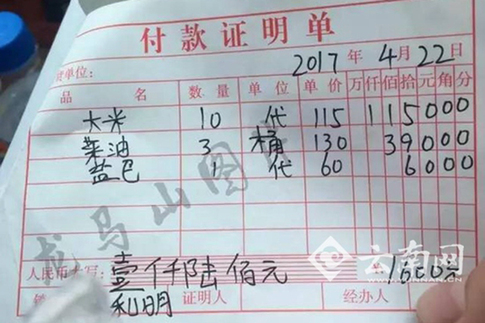 付款证明单
2017年4月22日
单位：
品名 数量 单位 单价 万仟佰拾元角分
大米 10 代 115 115000
菜油 3 桶 130 39000
盐巴 1 代 60 6000
龙马山
云南网
人民币大写：壹仟陆佰元 1600元
利明 证明人 经办人